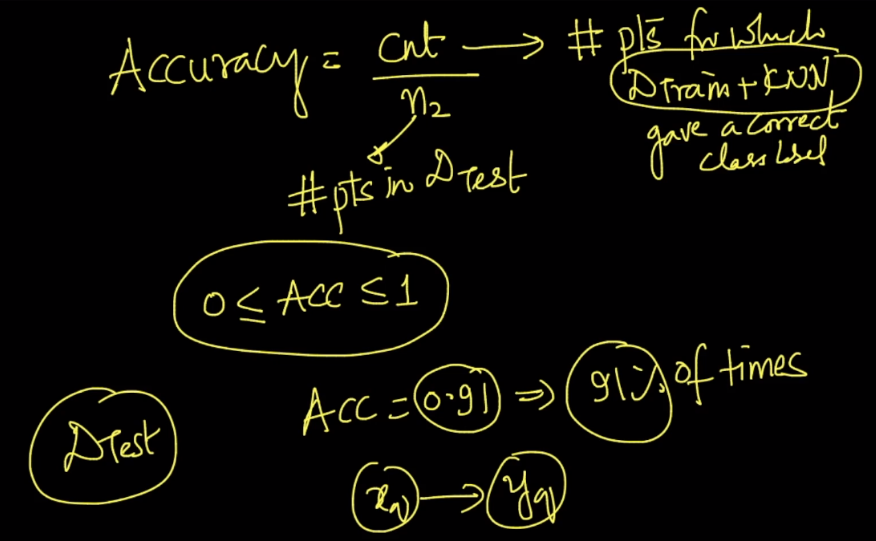 Accuracy = cnt → # pts for which
n2
DTrain + KNN
gave a correct
class label
#pts in DTest
0 ≤ Acc ≤ 1
Acc = 0.91 ⇒ 91% of times
DTest
xq → yq